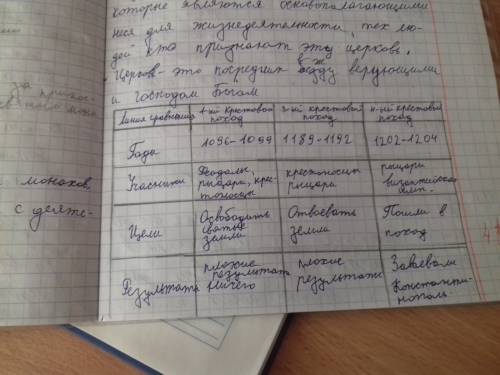 которые являются основополагающими
ниея для жизнедеятельности, тех лю-
дей кто признают эту церковь.
Церковь - это посредник между верующими
и Господом Богом
Линия сравнения 1-ый крестовый поход 3-ий крестовый поход 4-ый крестовый поход
Года 1096-1099 1189-1192 1202-1204
Участники Феодалы, рыцари, крестоносцы крестоносцы рыцари рыцари византийская имп.
Цели Освободить святые земли Отвоевать земли Пошли в поход
Результаты плохие результаты ничего плохие результаты Завоевали Константинополь
монахов,
с деяте-